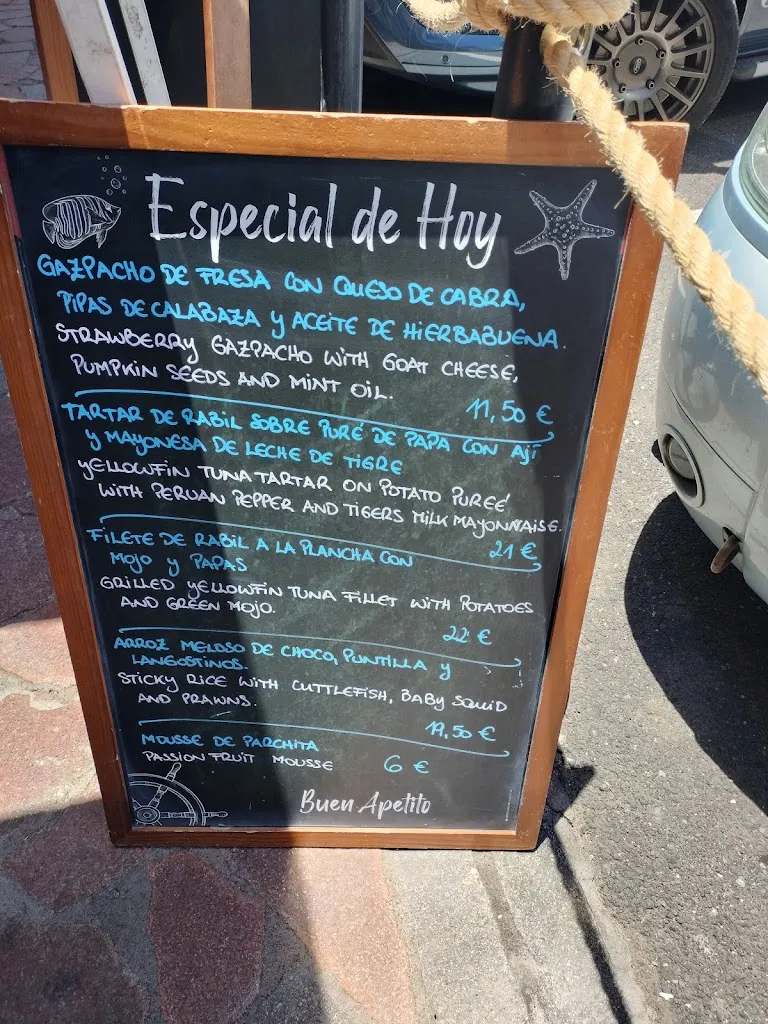 Especial de Hoy
GAZPACHO DE FRESA CON QUESO DE CABRA,
PIPAS DE CALABAZA Y ACEITE DE HIERBABUENA.
STRAWBERRY GAZPACHO WITH GOAT CHEESE,
PUMPKIN SEEDS AND MINT OIL.
11,50 €
TARTAR DE RABIL SOBRE PURÉ DE PAPA CON AJÍ
Y MAYONESA DE LECHE DE TIGRE
YELLOWFIN TUNA TARTAR ON POTATO PUREÉ
WITH PERUAN PEPPER AND TIGERS MILK MAYONNAISE.
21 €
FILETE DE RABIL A LA PLANCHA CON
MOJO Y PAPAS
GRILLED YELLOWFIN TUNA FILLET WITH POTATOES
AND GREEN MOJO.
22 €
ARROZ MELOSO DE CHOCO, PUNTILLA Y
LANGOSTINOS.
STICKY RICE WITH CUTTLEFISH, BABY SQUID
AND PRAWNS.
19,50 €
MOUSSE DE PARCHITA
PASSION FRUIT MOUSSE 6 €
Buen Apetito